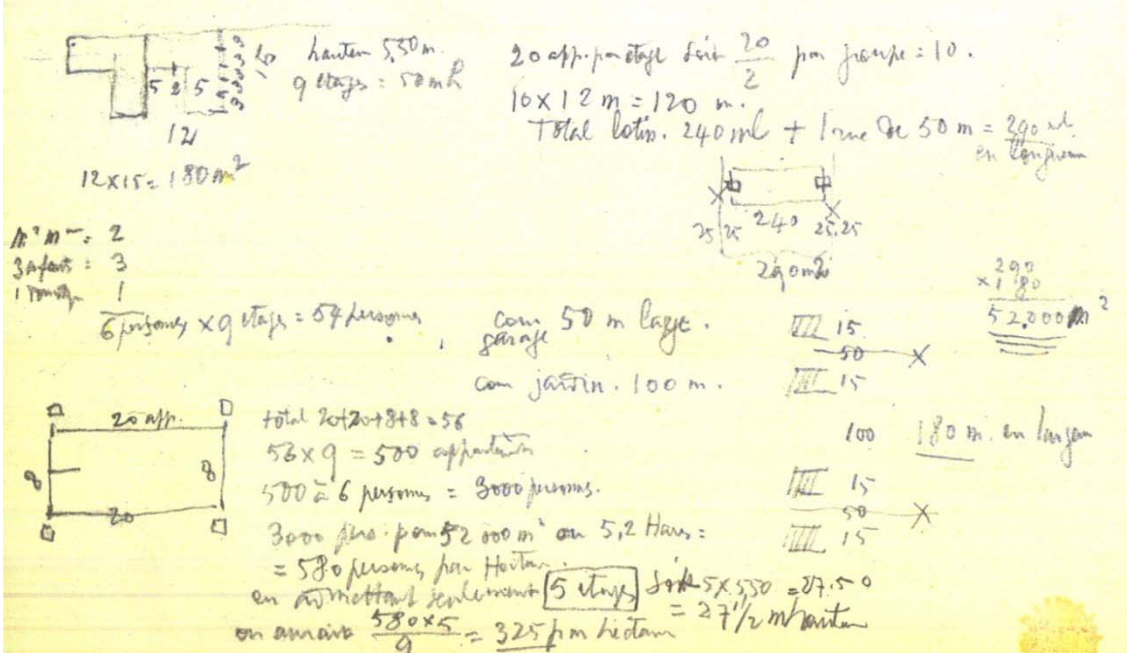 hauteur 5,50 m.
9 étages = 50 m h
5 2 5
15
3 3 3 3 3
12
12 x 15 = 180 m²
20 app. par étage soit 20/2 par groupe = 10.
10 x 12 m = 120 m.
Total lotis. 240 ml + 1 rue de 50 m = 290 ml
en longueur
25 25 240 25.25
290 m
290
x 180
52,000 m²
= 2
3 enfants = 3
1
6 personnes x 9 étages = 54 personnes
cour garage 50 m large.
cour jardin. 100 m.
15
50
15
100
180 m. en largeur
15
50
15
20 app.
8 8
20
total 20+20+8+8 = 56
56 x 9 = 500 appartements
500 à 6 personnes = 3000 personnes.
3000 pers. pour 52 000 m² ou 5,2 Hares =
= 580 personnes par Hectare.
en admettant seulement 5 étages soit 5 x 5,50 = 27.50
= 27 1/2 m hauteur
on aurait 580 x 5 / 9 = 325 par hectare